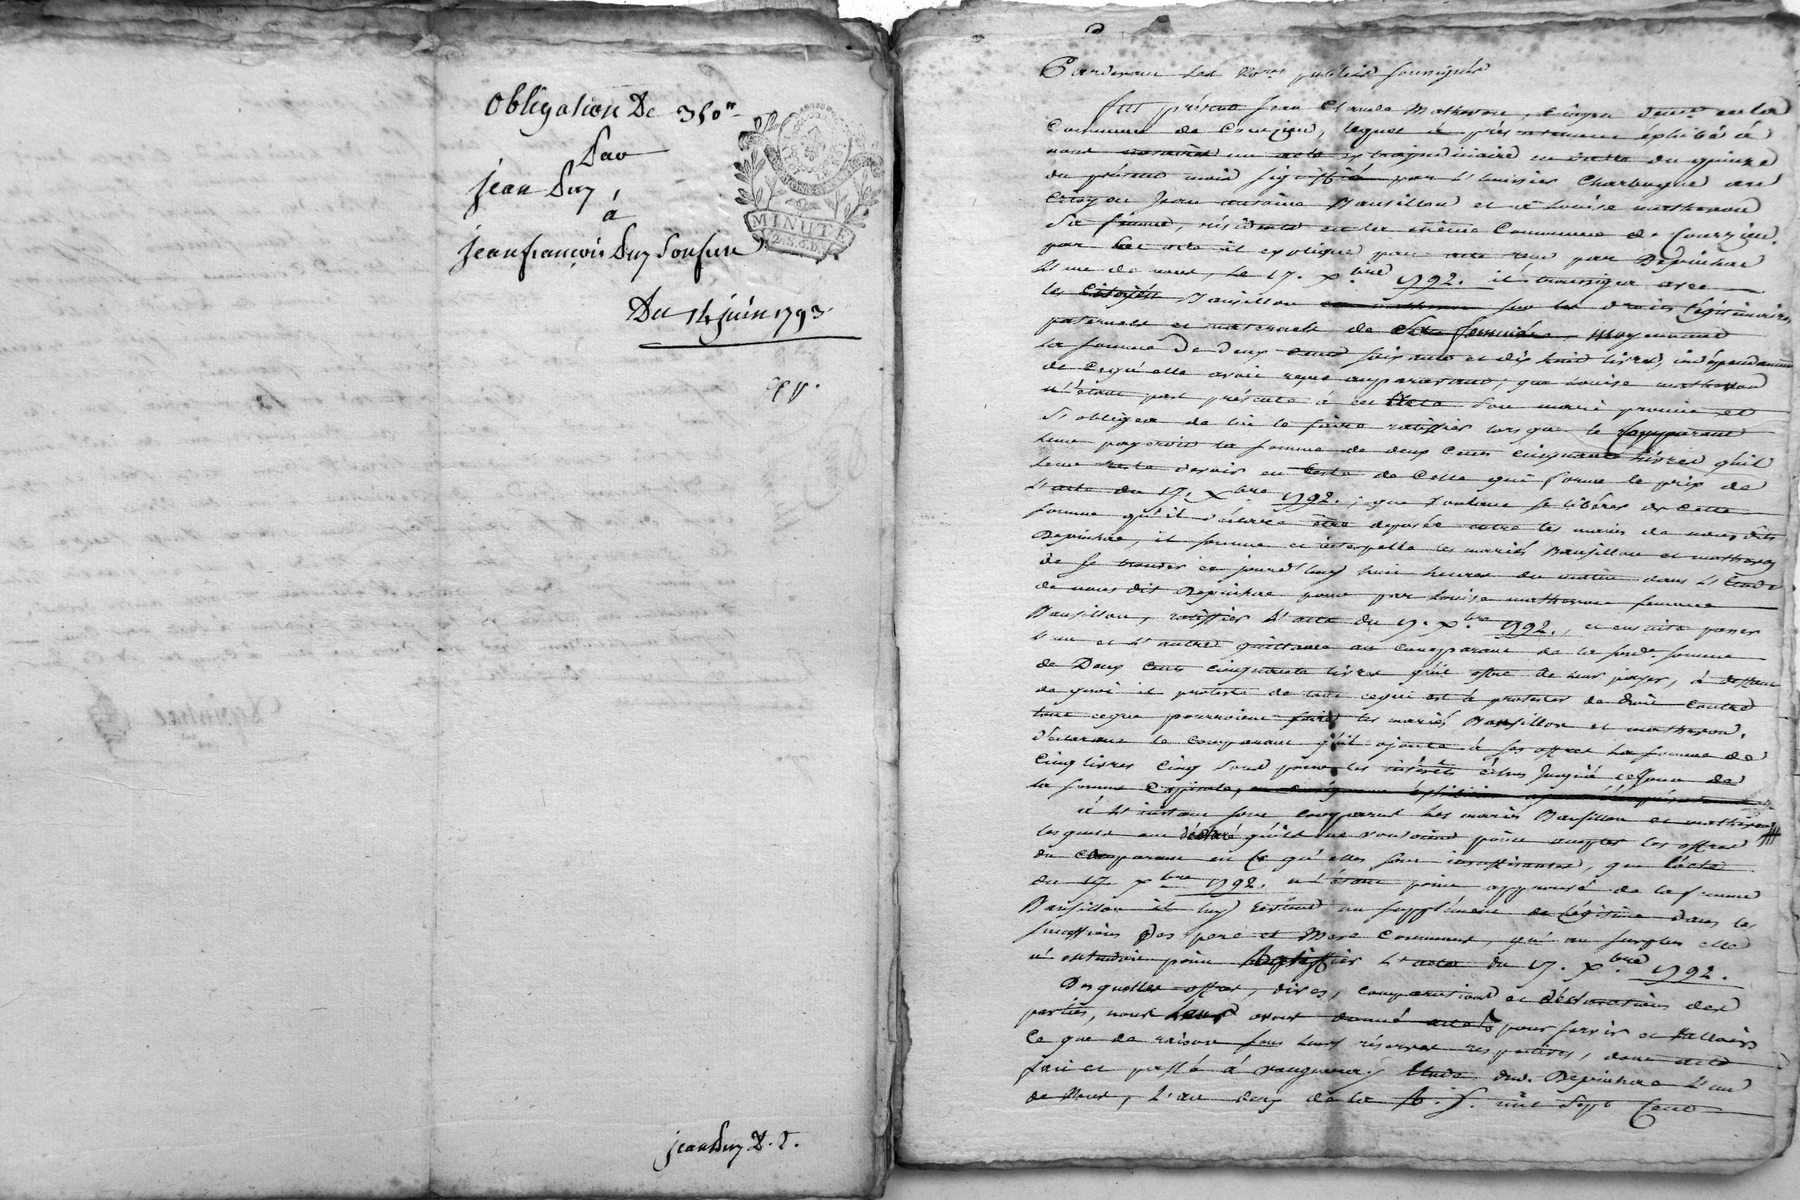 Obligation De 350ᵗᵗ
Par
jean Duy,
à
jean françois Duy Son frere
Du 14 juin 1793.
MINUTE
2.S.6.D.
jean Duy D. T.
Pardevant les No.res publics soussignés
fut présent Jean Claude Matheron, Citoyen demt. en la
Commune de Courzieu, lequel a présentement exhibé à
nous un acte extrajudiciaire en datte du quinze
du présent mois signiffié par L'huissier Charbogne au
Citoyen Jean antoine Bansillon et à Louise matheron
Sa femme, résidents en la même Commune de Courzieu.
par cet acte il expliqué que par acte reçu par Depinhac
L'un de nous, Le 17. Xbre 1792. il transigea avec
les Bansillon sur les droits Légitimaires
paternels et maternels de moyennant
la somme De deux Cent soixante et dix huit livres, indépendamment
de Ce qu'elle avoit reçu auparavant; que Louise matheron
n'étant pas présente à cet acte Son mari promit et
S'obligea de la lui faire ratiffier lorsque le comparant
leur payeroit la somme de deux Cents Cinquante livres qu'il
leur reste devoir en reste de Celle qui forme le prix de
L'acte du 17. Xbre 1792.; que voulant se libérer de Cette
somme qu'il déclare être déposée entre les mains de nous dits
Depinhac, il somme et interpelle les mariés Bansillon et matheron
de se trouver ce jourd'huy huit heures du matin dans L'Etude
de nous dit Depinhac pour par Louise matheron femme
Bansillon, ratiffier L'acte du 17. Xbre 1792., et ensuite passer
L'un et L'autre quittance au comparant de la susde. somme
de Deux cents cinquante livres qu'il offre de leur payer, à deffaut
de quoi il proteste de tout ce qui est à protester de droit Contre
tout ce que pourroient faire les mariés Bansillon et matheron.
déclarant le comparant qu'il ajoute à ses offres la somme de
Cinq livres Cinq Sous pour les intérêts échus Jusqu'à ce Jour de
la somme Capitale,
à L'instant sont comparus Les mariés Bansillon et matheron
lesquels ont déclaré qu'ils ne vouloient point accepter les offres
du Comparant en Ce qu'elles sont insuffisantes, que L'acte
du 17. Xbre 1792. n'étant point approuvé de la femme
Bansillon il luy restoit un supplément de Légitime dans les
successions Des pere et Mere Communs, qu'au surplus elle
n'entendoit point Ratiffier L'acte du 17. Xbre 1792.
Desquelles offres, dires, comparutions et déclarations des
parties, nous avons donné acte pour servir et valloir
Ce que de raison sous leurs réserves respectives, dont acte
fait et passé à vaugneray Etude dud. Depinhac L'un
de Nous, L'an deux de la R. f. mil Sept Cent